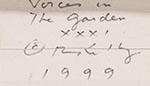 Voices in
The Garden
XXXI
©
1999